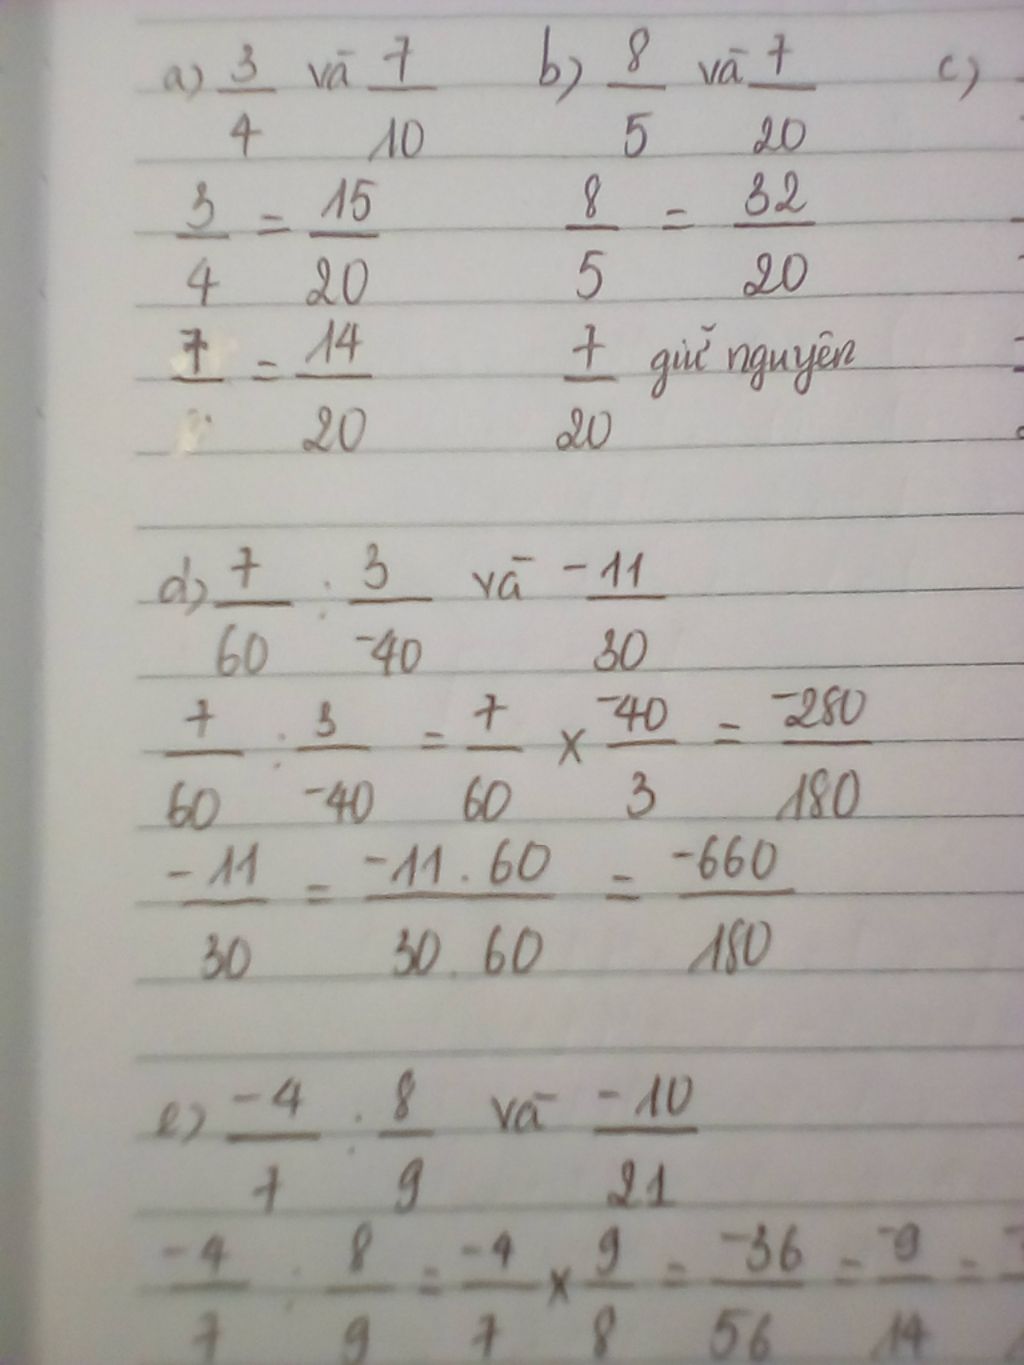 a) 3/4 và 7/10 b) 8/5 và 7/20 c)
3/4 = 15/20 8/5 = 32/20
7/ = 14/20 7/20 giữ nguyên
d) 7/60 : 3/-40 và -11/30
7/60 : 3/-40 = 7/60 x -40/3 = -280/180
-11/30 = -11.60/30.60 = -660/180
e) -4/7 : 8/9 và -10/21
-4/7 : 8/9 = -4/7 x 9/8 = -36/56 = -9/14 =